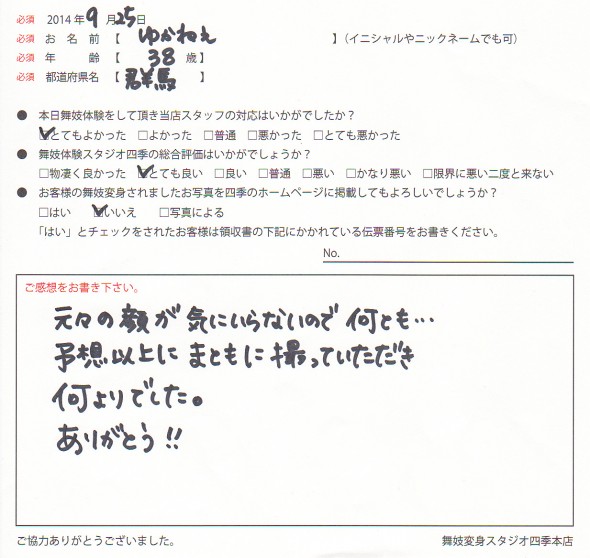 必須 2014年9月25日
必須 お名前【 ゆかねえ 】(イニシャルやニックネームでも可)
必須 年齢【 38 歳】
必須 都道府県名【 群馬 】
● 本日舞妓体験をして頂き当店スタッフの対応はいかがでしたか?
☑とてもよかった □よかった □普通 □悪かった □とても悪かった
● 舞妓体験スタジオ四季の総合評価はいかがでしょうか?
□物凄く良かった ☑とても良い □良い □普通 □悪い □かなり悪い □限界に悪い二度と来ない
● お客様の舞妓変身されましたお写真を四季のホームページに掲載してもよろしいでしょうか?
□はい ☑いいえ □写真による
「はい」とチェックをされたお客様は領収書の下記にかかれている伝票番号をお書きください。
No.
ご感想をお書き下さい。
元々の顔が気にいらないので何とも…
予想以上にまともに撮っていただき
何よりでした。
ありがとう!!
ご協力ありがとうございました。 舞妓変身スタジオ四季本店